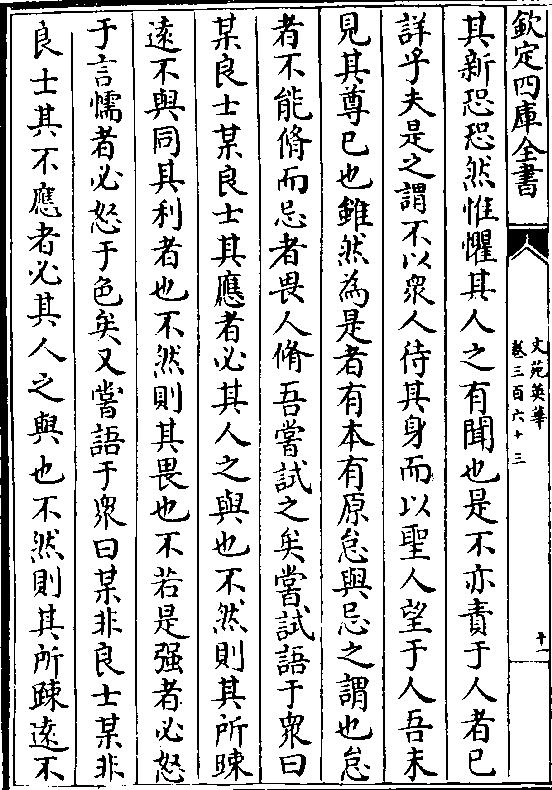 欽定四庫全書
文苑英華
卷三百六十三
十一
其新恐恐然惟懼其人之有聞也是不亦責于人者已
詳乎夫是之謂不以衆人待其身而以聖人望于人吾未
見其尊已也雖然為是者有本有原怠與忌之謂也怠
者不能脩而忌者畏人脩吾嘗試之矣嘗試語于衆曰
某良士某良士其應者必其人之與也不然則其所踈
逺不與同其利者也不然則其畏也不若是强者必怒
于言懦者必怒于色矣又嘗語于衆曰某非良士某非
良士其不應者必其人之與也不然則其所踈逺不